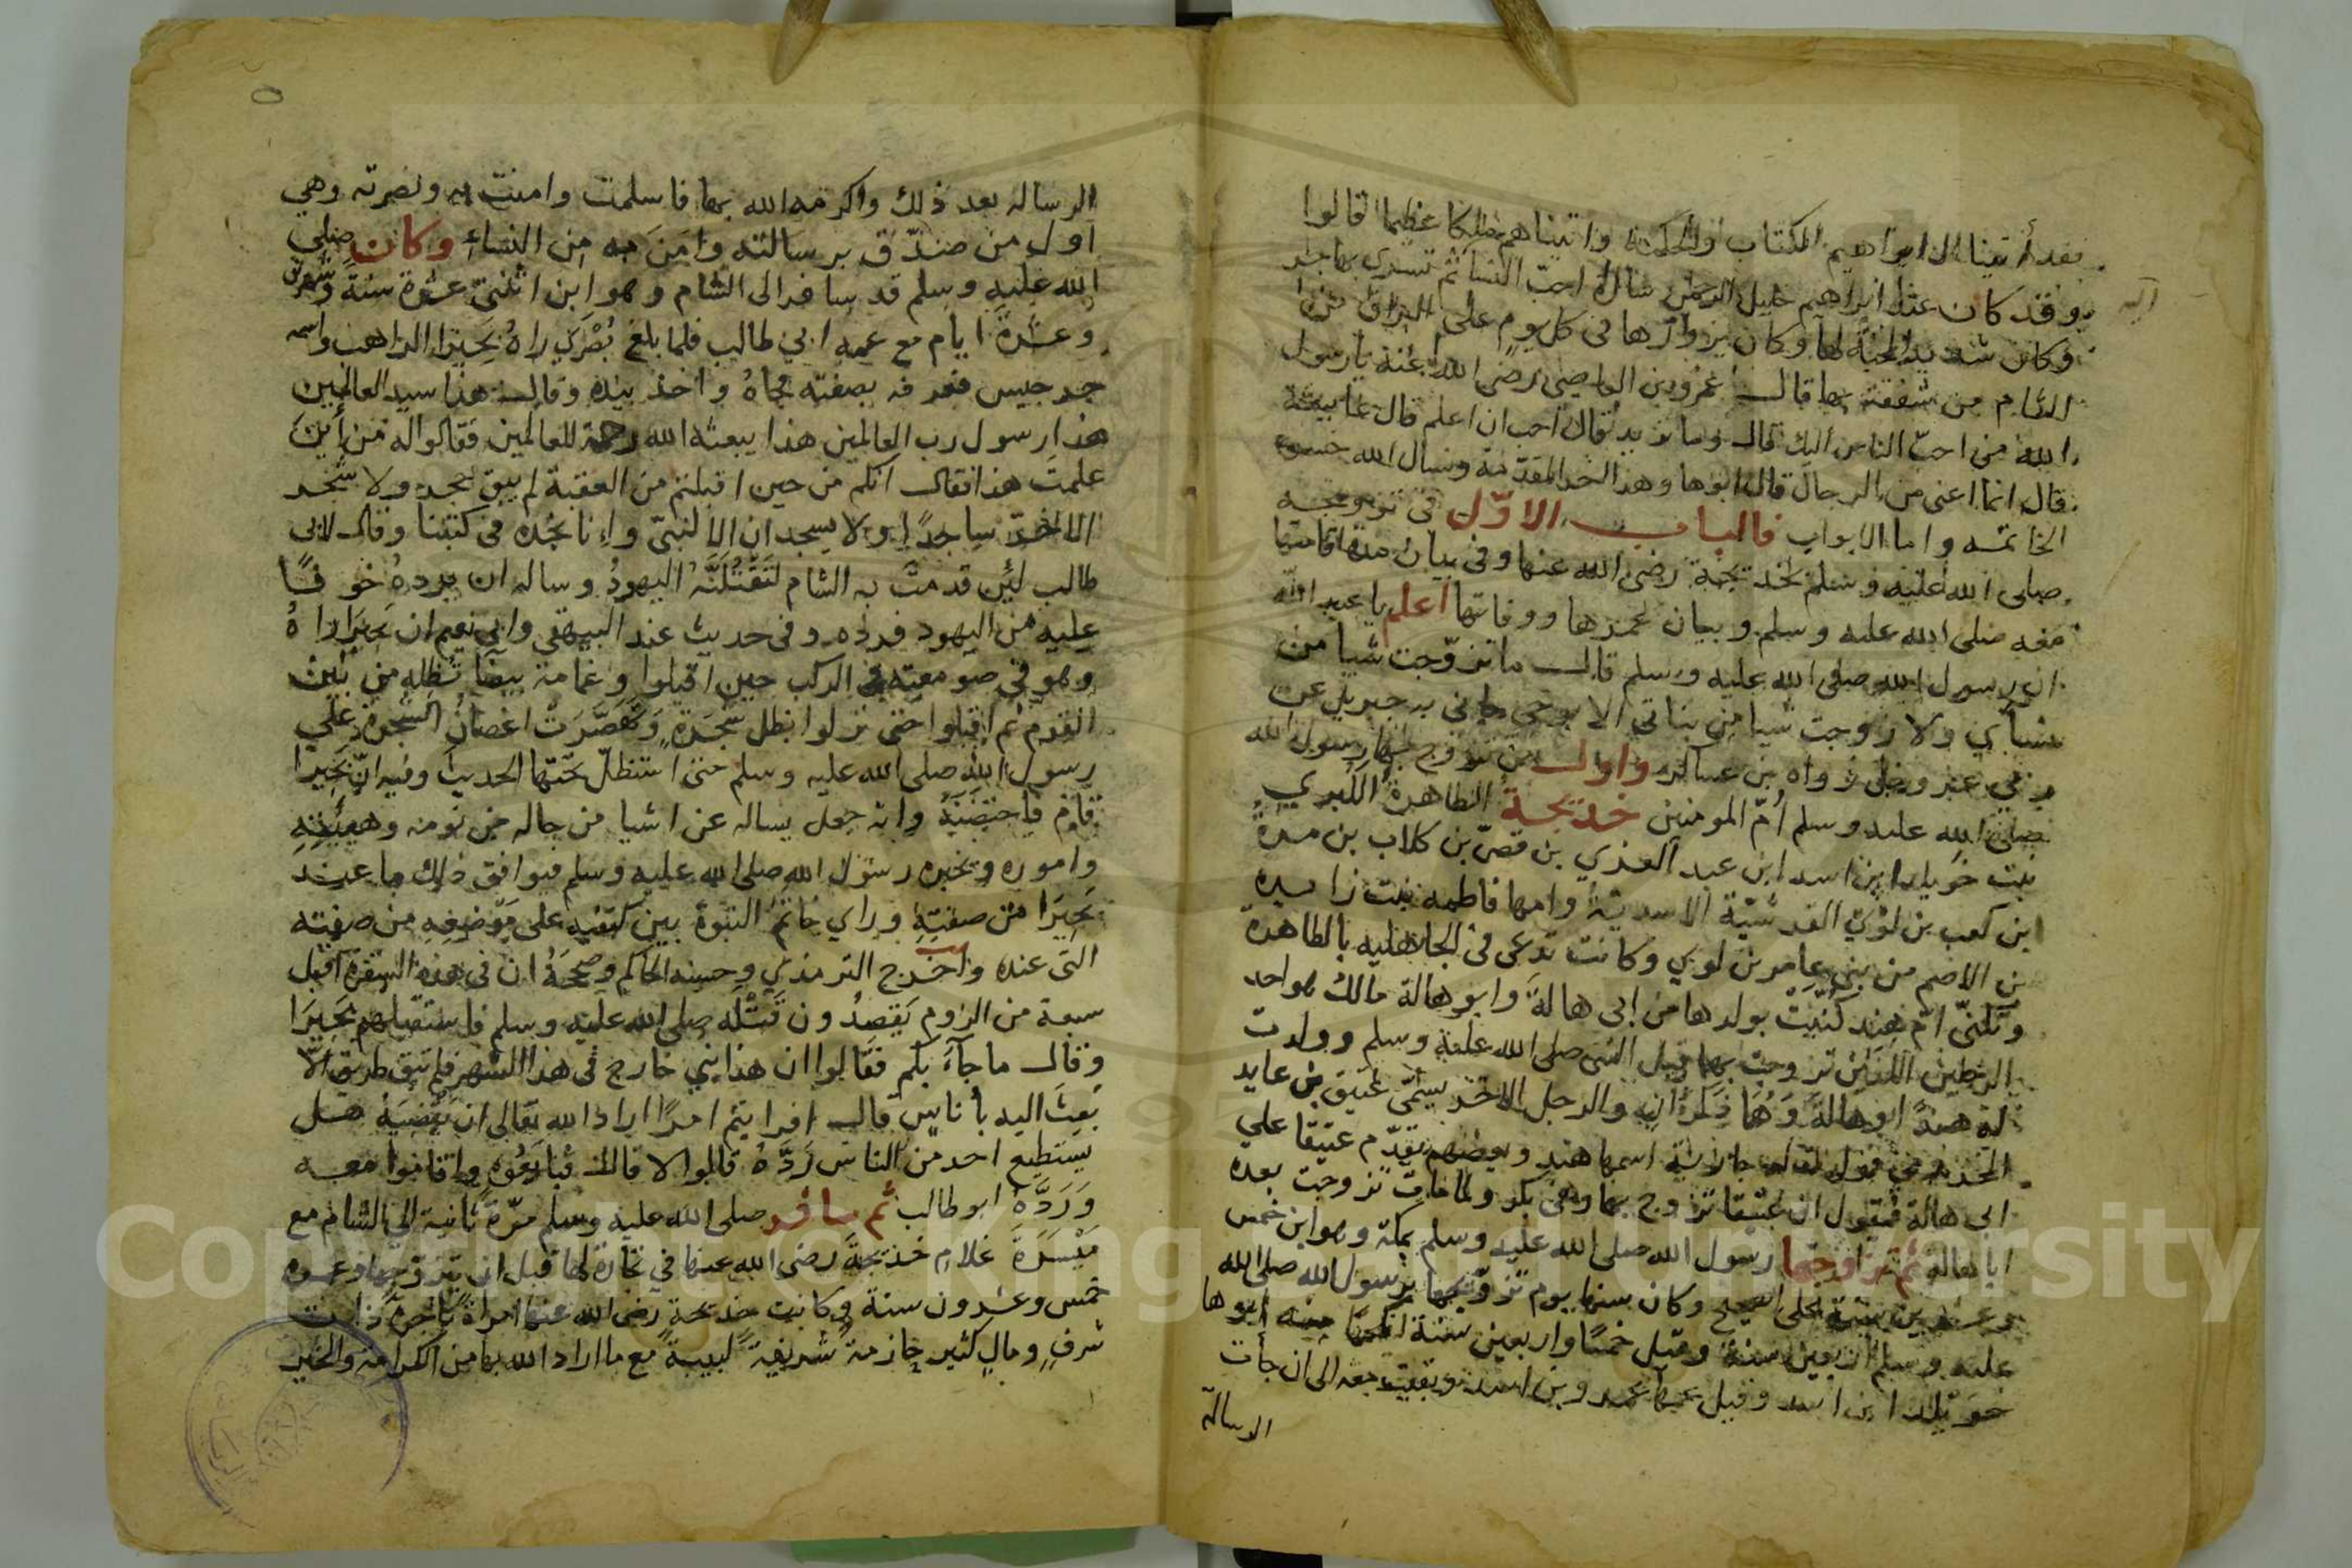 فقد أتينا ال ابراهيم الكتاب والحكمة واتيناهم ملكا عظيما قالوا
وقد كان عند ابراهيم خليل الرحمن سارة احب النسا ثم تسرى بهاجر
وكان شديد المحبة لها وكان يزورها في كل يوم على البراق من
الشام من شفقته بها قال عمرو بن العاصي رضي الله عنه يا رسول
الله من احب الناس اليك قال وما تريد قال احب ان اعلم قال عايشة
قال انما اعني من الرجال قال ابوها وهذا اخر المقدمة ونسال الله حسن
الخاتمه واما الابواب فالباب الاول في تزويجه
صلى الله عليه وسلم بخديجة رضي الله عنها وفي بيان مدة اقامتها
معه صلى الله عليه وسلم وبيان عمرها ووفاتها اعلم يا عبد الله
ان رسول الله صلى الله عليه وسلم قال ما تزوجت شيا من
نسآي ولا زوجت شيا من بناتي الا بوحي جاني به جبريل عن
ربي عز وجل رواه بن عساكر واول من تزوج بها رسول الله
صلى الله عليه وسلم أم المومنين خديجة الطاهرة الكبري
بنت خويلد ابن اسد ابن عبد العزي بن قصي بن كلاب بن مرة
ابن كعب بن لؤي القرشية الاسدية وامها فاطمه بنت زايدة
بن الاصم من بني عامر بن لوي وكانت تدعى في الجاهليه بالطاهرة
وتكنى ام هند كنيت بولدها من ابى هالة وابو هالة مالك هو احد
الرجلين اللذين تزوجت بهما قبل النبي صلى الله عليه وسلم وولدت
له هندا ابو هالة وهما ذكران والرجل الاخر يسمى عتيق بن عايد
المخزومي فولدت له جارية اسمها هند وبعضهم يقدم عتيقا علي
ابى هالة فيقول ان عتيقا تزوج بها وهي بكر ولما مات تزوجت بعده
ابا هالة ثم تزوجها رسول الله صلى الله عليه وسلم بمكة وهو ابن خمس
وعشرين سنة على الصحيح وكان سنها يوم تزوجها رسول الله صلى الله
عليه وسلم اربعين سنة وقيل خمسا واربعين سنة انكحها منه ابوها
خويلد ابن اسد وقيل عمها عمرو بن اسد وبقيت معه الى ان جأت
الرسالة
الرساله بعد ذلك واكرمه الله بها فاسلمت وامنت به ونصرته وهي
اول من صدق برسالته وامن به من النساء وكان صلى
الله عليه وسلم قد سافر الى الشام وهو ابن اثنتي عشرة سنة وشهرين
وعشرة ايام مع عمه ابي طالب فلما بلغ بصري راه بحيرا الراهب واسمه
جرجيس فعرفه بصفته فجاه واخذ بيده وقال هذا سيد العالمين
هذا رسول رب العالمين هذا يبعثه الله رحمة للعالمين فقالوا له من أين
علمت هذا فقال انكم من حين اقبلتم من العقبة لم يبق حجر ولا شجر
الا خر ساجدا ولا يسجدان الا لنبي وانا نجده في كتبنا وقال لابى
طالب لئن قدمت به الشام لتقتلنه اليهود وساله ان يرده خوفا
عليه من اليهود فرده وفي حديث عند البيهقي وابي نعيم ان بحيرا راه
وهو في صومعته في الركب حين اقبلوا وغمامة بيضا تظله من بين
القوم ثم اقبلوا حتى نزلوا بظل شجرة وتهصرت اغصان الشجرة علي
رسول الله صلى الله عليه وسلم حتى استظل تحتها الحديث وفيه ان بحيرا
قام فاحتضنه وانه جعل يساله عن اشيا من حاله من نومه وهيئته
واموره ويخبره رسول الله صلى الله عليه وسلم فيوافق ذلك ما عند
بحيرا من صفته وراي خاتم النبوة بين كتفيه على موضعه من صفته
التي عنده واخرج الترمذي وحسنه الحاكم وصححه ان في هذه السفرة اقبل
سبعة من الروم يقصدون قتله صلى الله عليه وسلم فاستقبلهم بحيرا
وقال ما جآء بكم فقالوا ان هذا نبي خارج في هذا الشهر فلم يبق طريق الا
بعث اليه بأناس قال افرايتم امرا اراد الله تعالى ان يقضيه هل
يستطيع احد من الناس رده قالوا لا قال فبايعوه واقاموا معه
ورده ابو طالب ثم سافر صلى الله عليه وسلم مرة ثانية الى الشام مع
ميسرة غلام خديجة رضي الله عنها في تجارة لها قبل ان يتزوجها وعمره
خمس وعشرون سنة وكانت خديجة رضي الله عنها امراة تاجرة ذات
شرف ومال كثير حازمة شريفة لبيبة مع ما اراد الله بها من الكرامة والخير
Copyright © King Saud University